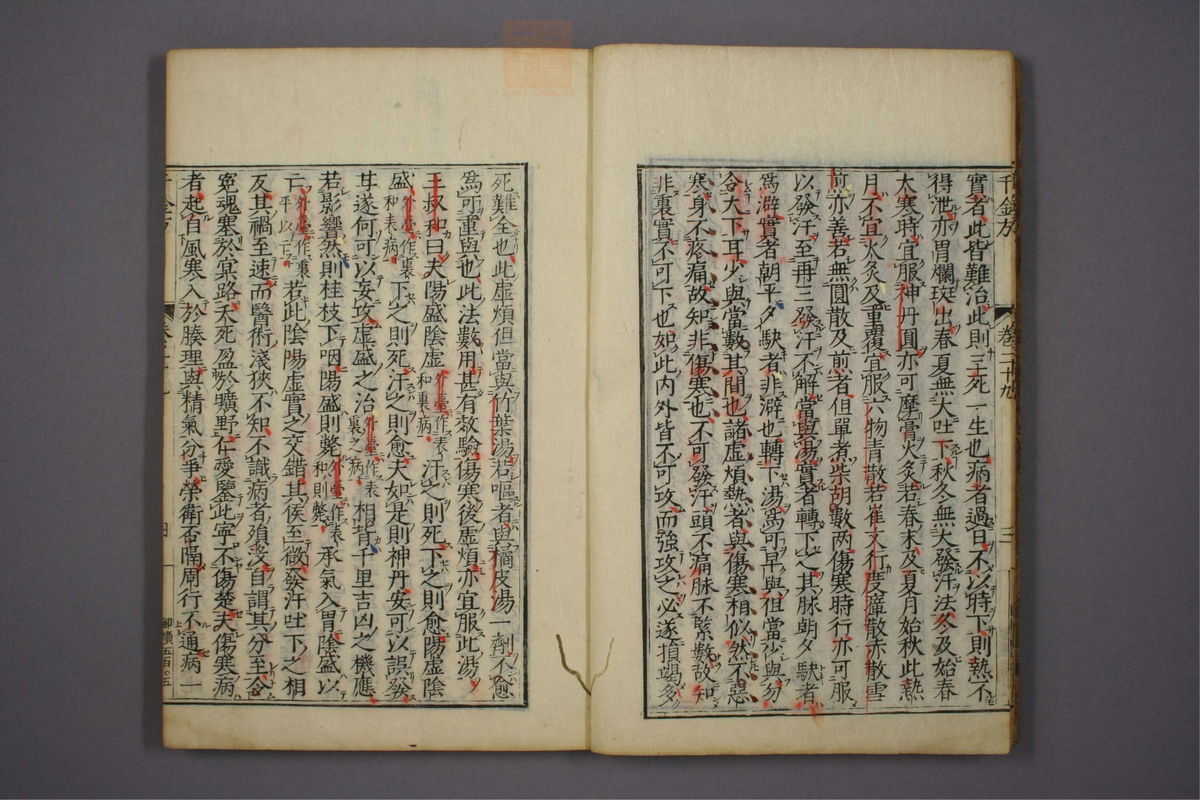 千金方　卷二十九　三
實者此皆難治此則三死一生也病者過日不以時下則熱不
得泄亦胃爛斑出春夏無大吐下秋冬無大發汗法冬及始春
太寒時宜服神丹圓亦可摩膏火灸若春末及夏月始秋此熱
月不宜火灸及重覆宜服六物青散若崔文行度瘴散赤散雪
煎亦善若無圓散及煎者但單煮柴胡數两傷寒時行亦可服
以發汗至再三發汗不解當與湯實者轉下之其脉朝夕駃者
爲澼實者朝平夕駃者非澼也轉下湯爲可早與但當少與勿
令大下耳少與當數其間也諸虚煩熱者與傷寒相似然不惡
寒身不疼痛故知非傷寒也不可發汗頭不痛脉不緊數故知
非裏實不可下也如此内外皆不可攻而強攻之必遂損竭多
死難全也此虚煩但當與竹葉湯若嘔者與橘皮湯一劑不愈
爲可重與也此法數用甚有效驗傷寒後虚煩亦宜服此湯
王叔和曰夫陽盛陰虚外臺作表和裏病汗之則死下之則愈陽虚陰
盛外臺作裏和表病下之則死汗之則愈夫如是則神丹安可以誤發
甘遂何可以妄攻虚盛之治外臺作表裏之病相背千里吉凶之機應
若影響然則桂枝下咽陽盛則斃外臺作表和則斃承氣入胃陰盛以
亡外臺作裏平以亡若此陰陽虚實之交錯其候至微發汗吐下之相
反其禍至速而醫術淺狹不知不識病者殞没自謂其分至令
冤魂塞於冥路夭死盈於曠野仁愛鑒此寧不傷楚夫傷寒病
者起自風寒入於腠理與精氣分爭榮衛否隔周行不通病一
四